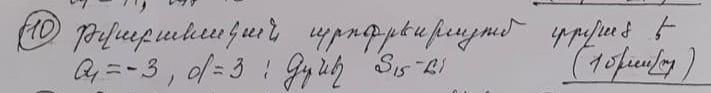 (10) Թվաբանական պրոգրեսիայում տրված է
a₁ = -3, d = 3 ։ Գտնել S₁₅ -ը։ (1 միավոր)